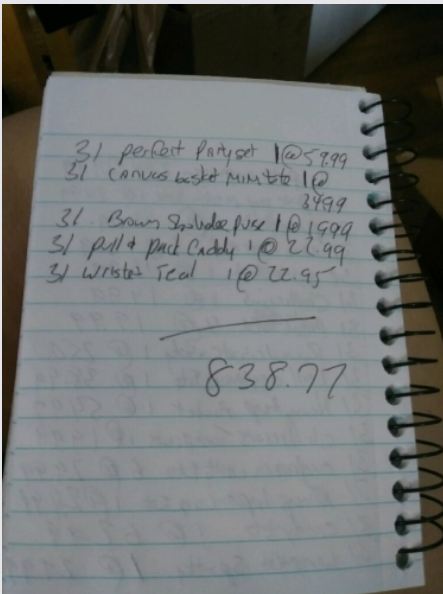 31 perfect Party set 1@59.99
31 Canvas basket MINI tote 1@
3499
31 Brown Shoulder purse 1@1999
31 pull & pack Caddy 1@ 22.99
31 wristes Teal 1@ 22.95
838.77